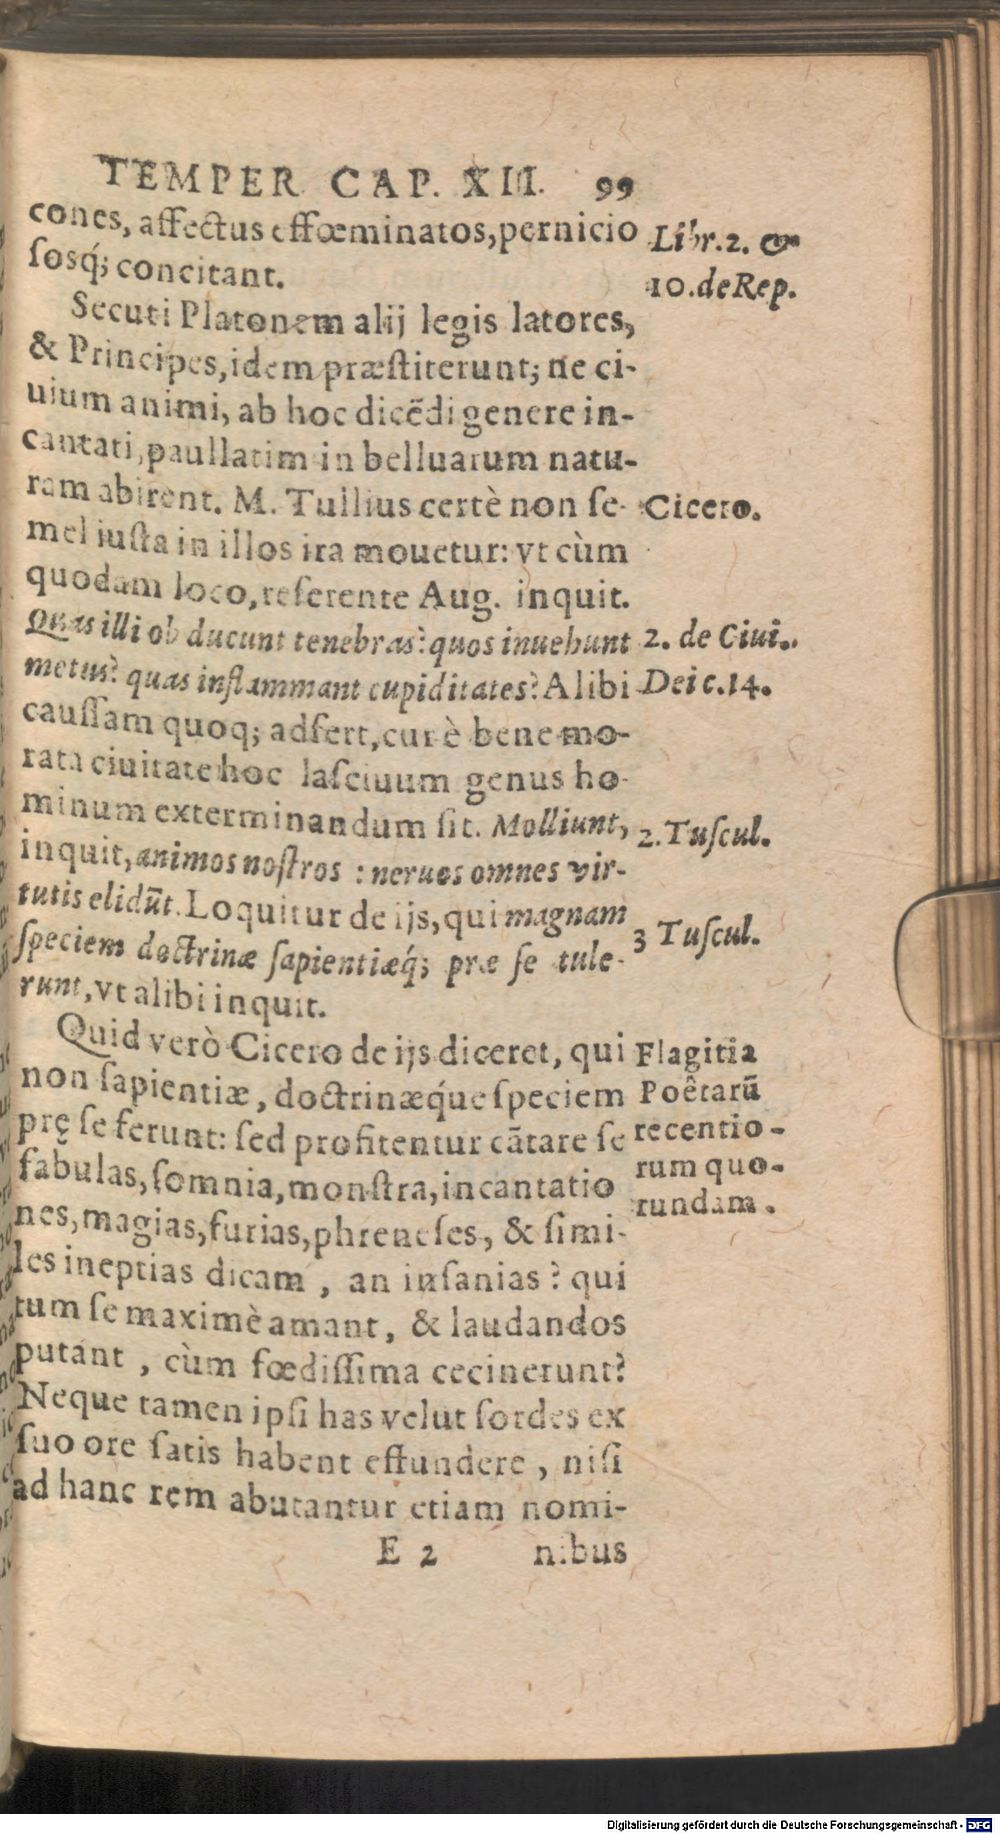 TEMPER CAP. XII. 99
cones, affectus effœminatos, pernicio
sosq́; concitant.
Libr. 2. &
10. de Rep.
Secuti Platonem alij legis latores,
& Principes, idem præstiterunt; ne ci-
uium animi, ab hoc dicẽdi genere in-
cantati, paullatim in belluarum natu-
ram abirent. M. Tullius certè non se-
Cicero.
mel iusta in illos ira mouetur: vt cùm
quodam loco, referente Aug. inquit.
Quas illi ob ducunt tenebras? quos inuehunt
2. de Ciui.
metus? quas inflammant cupiditates? Alibi
Dei c. 14.
caussam quoq; adfert, cur è bene mo-
rata ciuitate hoc lasciuum genus ho-
minum exterminandum sit. Molliunt,
2. Tuscul.
inquit, animos nostros : neruos omnes vir-
tutis elidũt. Loquitur de ijs, qui magnam
3 Tuscul.
speciem doctrinæ sapientiæq́; præ se tule-
runt, vt alibi inquit.
Quid verò Cicero de ijs diceret, qui
non sapientiæ, doctrinæq́ue speciem
prę se ferunt: sed profitentur cãtare se
fabulas, somnia, monstra, incantatio
nes, magias, furias, phreneses, & simi-
Flagitia
Poêtarũ
recentio-
rum quo-
rundam.
les ineptias dicam , an insanias? qui
tum se maximè amant, & laudandos
putant , cùm fœdissima cecinerunt?
Neque tamen ipsi has velut sordes ex
suo ore satis habent effundere , nisi
ad hanc rem abutantur etiam nomi-
E 2 nibus
Digitalisierung gefördert durch die Deutsche Forschungsgemeinschaft - DFG